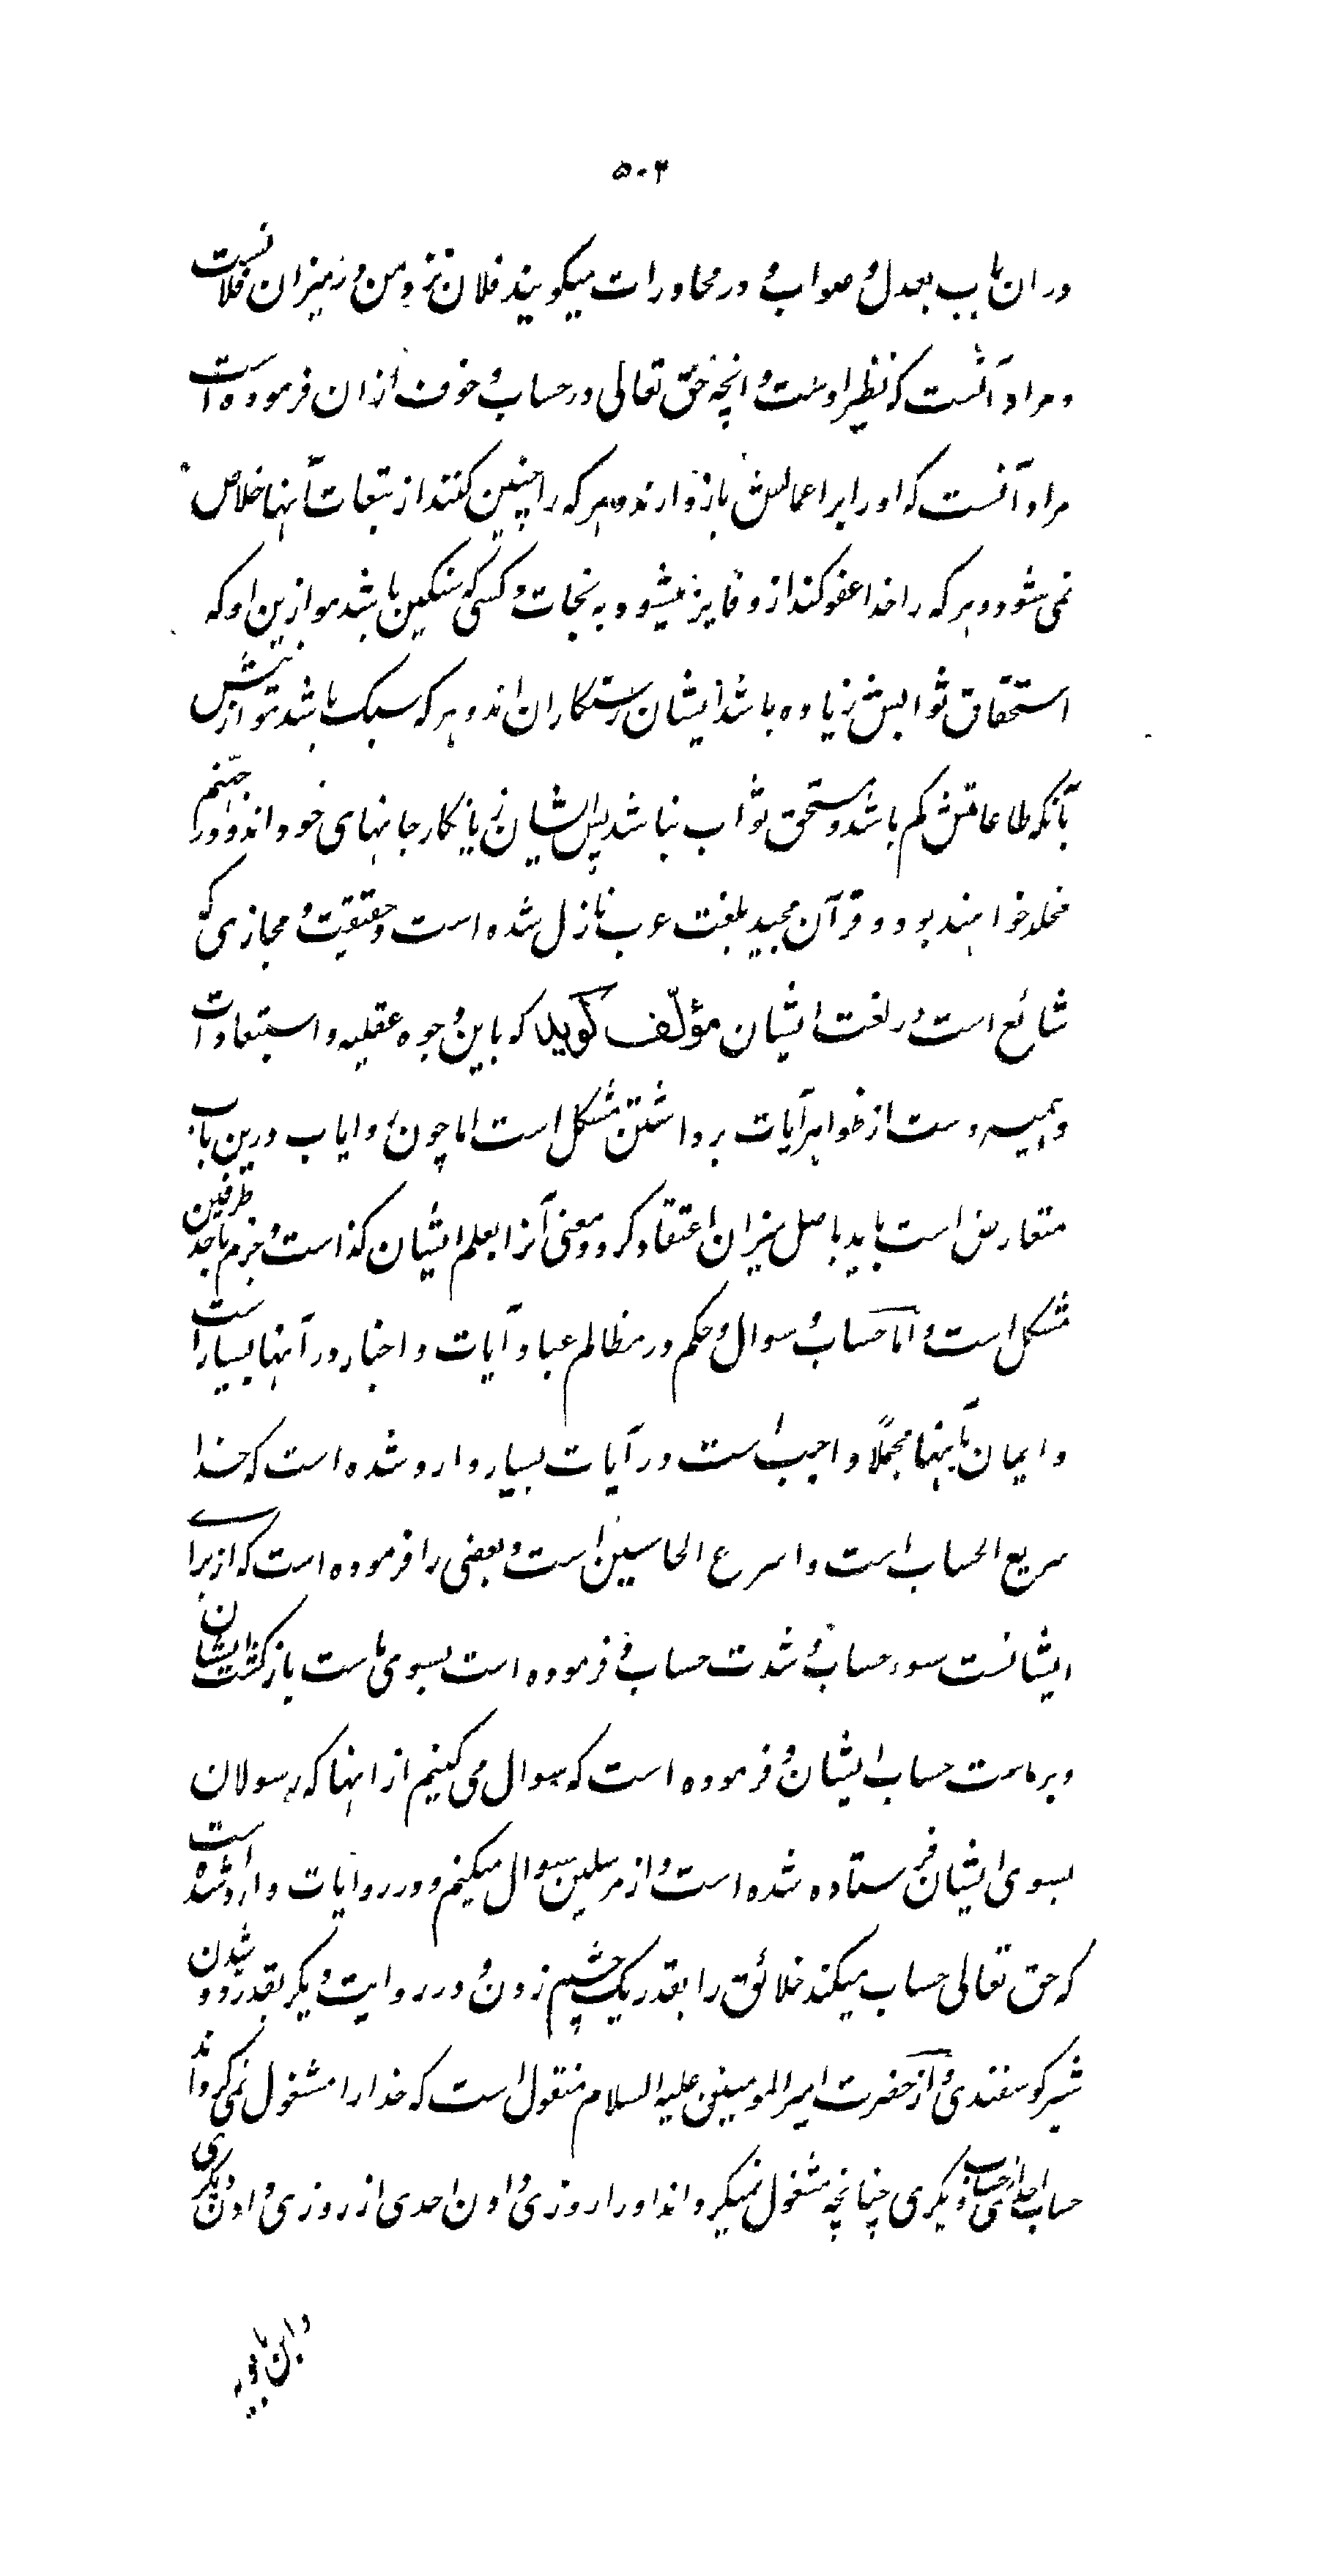 ۵۰۴
در ان باب بعدل و صواب و در محاورات میکویند فلان نزد من در میزان فلانست
و مراد آنست که نظیر اوست و انچه حق تعالی در حساب و خوف ازان فرموده است
مراد آنست که او را بر اعمالش باز دارند و هر که را چنین کنند از تبعات آنها خلاص
نمی شود و هر که را خدا عفو کند ازو فایز میشود به نجات و کسی که سنکین باشد موازین او که
استحقاق ثوابش زیاده باشد ایشان رستکاران اند و هر که سبک باشد موازینش
بآنکه طاعاتش کم باشد و مستحق ثواب نباشد پس ایشان زیانکار جانهای خود اند و در جهنم
مخلد خواهند بود و قرآن مجید بلغت عرب نازل شده است و حقیقت و مجازی که
شائع است در لغت ایشان مؤلف کوید که باین وجوه عقلیه و استبعادات
وهمیه دست از ظواهر آیات برداشتن مشکل است اما چون روایات درین باب
متعارض است باید باصل میزان اعتقاد کرد و معنی آنرا بعلم ایشان کذاشت و جزم باحد طرفین
مشکل است و اما حساب و سوال و حکم در مظالم عباد آیات و اخبار در آنها بسیار است
و ایمان بآنها مجملاً واجب است در آیات بسیار وارد شده است که خدا
سریع الحساب است و اسرع الحاسبین است و بعضی را فرموده است که از برای
ایشانست سوء حساب و شدت حساب و فرموده است بسوی ماست بازکشت ایشان
و بر ماست حساب ایشان و فرموده است که سوال می کنیم از انها که رسولان
بسوی ایشان فرستاده شده است و از مرسلین سوال میکنیم و در روایات وارد شده است
که حق تعالی حساب میکند خلائق را بقدر یک چشم زدن و در روایت دیکر بقدر دوشیدن
شیر کوسفندی و از حضرت امیرالمومنین علیه السلام منقول است که خدا را مشغول نمی کرداند
حساب احدی از حساب دیکری چنانچه مشغول نمیکرداند او را روزی دادن احدی از روزی دادن دیکری
و ابن بابویه